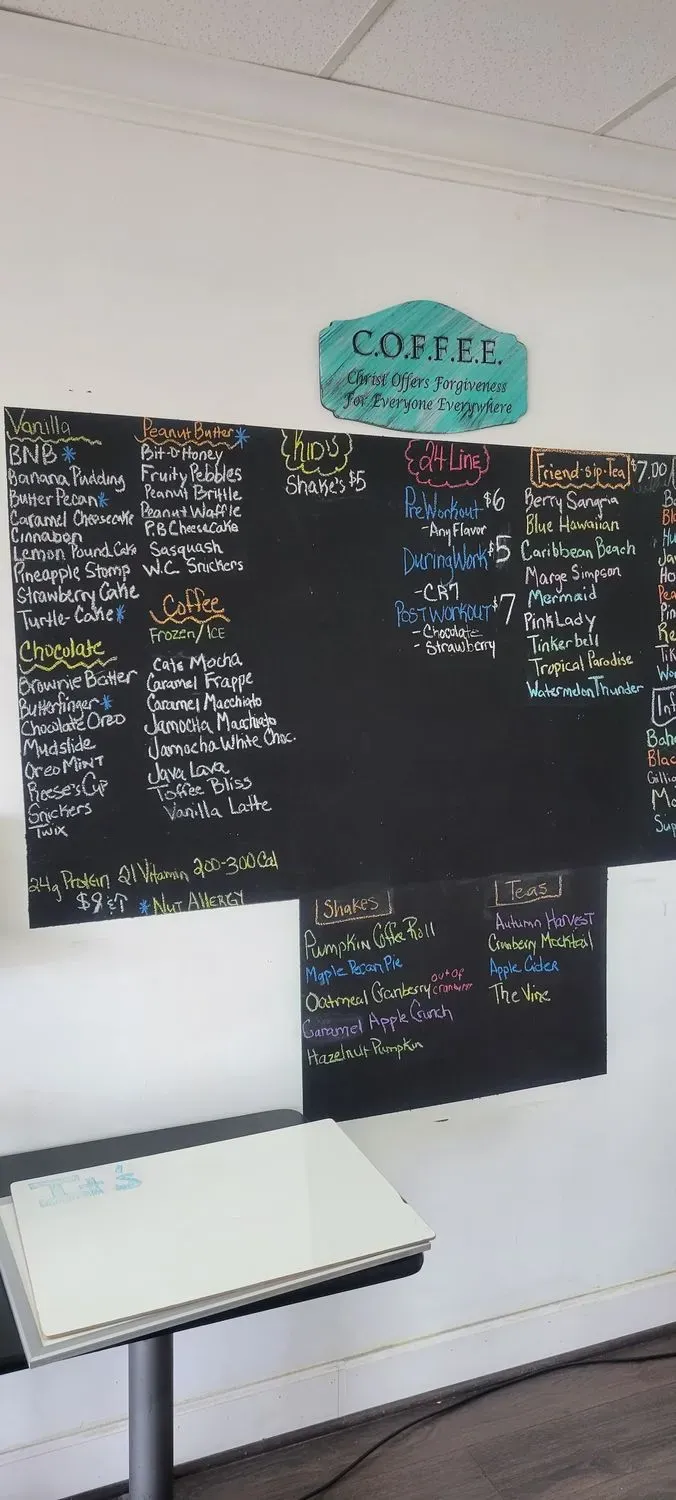 C.O.F.F.E.E.
Christ Offers Forgiveness
For Everyone Everywhere
Vanilla
BNB *
Banana Pudding
Butter Pecan *
Caramel Cheesecake
Cinnabon
Lemon Pound Cake
Pineapple Stomp
Strawberry Cake
Turtle-Cake *
Chocolate
Brownie Batter
Butterfinger *
Chocolate Oreo
Mudslide
Oreo Mint
Reese's Cup
Snickers
Twix
Peanut Butter *
Bit-O-Honey
Fruity Pebbles
Peanut Brittle
Peanut Waffle
P.B Cheesecake
Sasquash
W.C. Snickers
Coffee
Frozen/ICE
Cafe Mocha
Caramel Frappe
Caramel Macchiato
Jamocha Macchiato
Jamocha White Choc.
Java Lava
Toffee Bliss
Vanilla Latte
24g Protein 21 Vitamin 200-300 Cal
$9 * Nut Allergy
KID'S
Shake's $5
24 Line
PreWorkout $6
- Any Flavor
During Work $5
- CR7
Post Workout $7
- Chocolate
- Strawberry
Friend-sip-Tea $7.00/
Berry Sangria
Blue Hawaiian
Caribbean Beach
Marge Simpson
Mermaid
Pink Lady
Tinkerbell
Tropical Paradise
Watermelon Thunder
Shakes
Pumpkin Coffee Roll
Maple Pecan Pie
Oatmeal Cranberry out of
Caramel Apple Crunch
Hazelnut Pumpkin
Teas
Autumn Harvest
Cranberry Mocktail
Apple Cider
The Vine